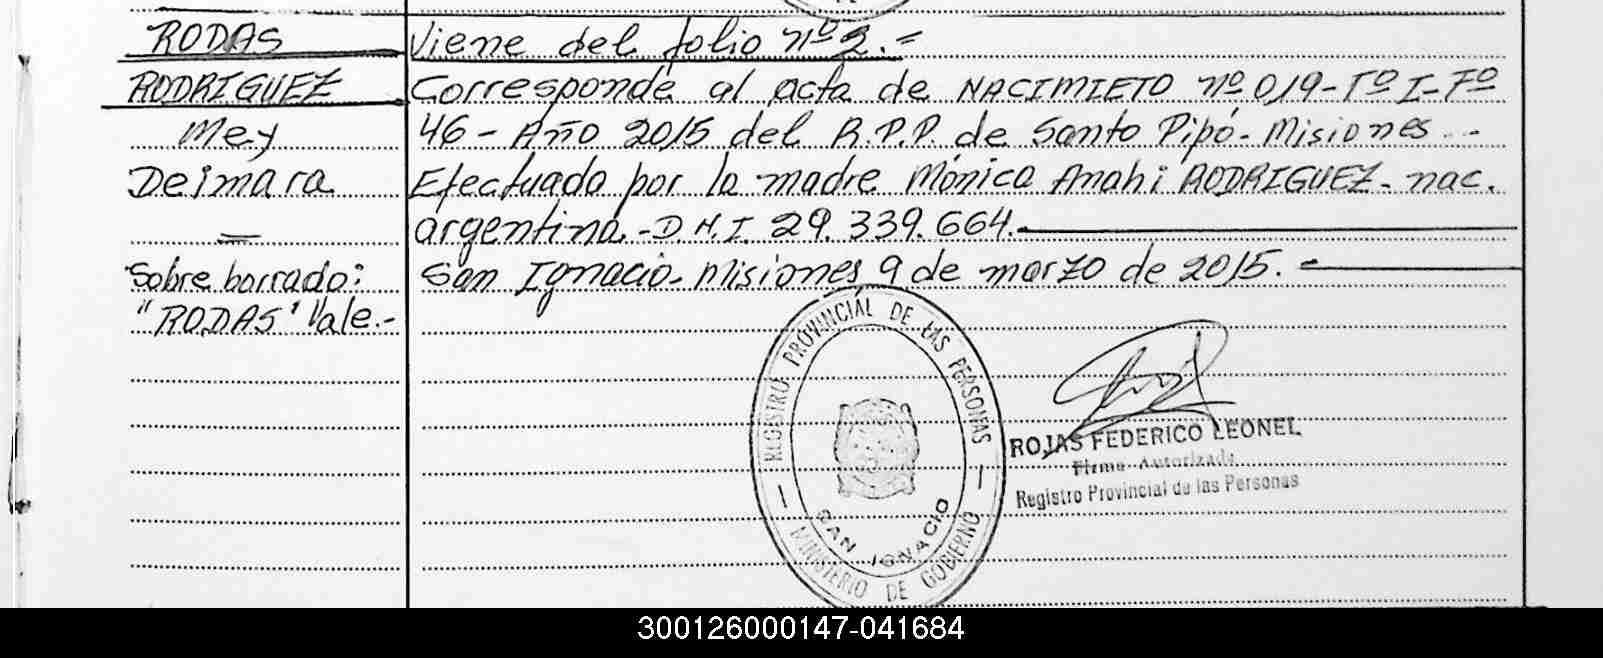 RODAS
RODRIGUEZ
Mey
Deimara
=
Sobre borrado:
"RODAS" Vale.-
Viene del folio nº 2.=
Corresponde al acta de NACIMIETO nº 019-Tº I-Fº
46 - Año 2015 del R.P.P. de Santo Pipó - Misiones -
Efectuado por la madre Mónica Anahi RODRIGUEZ - nac.
argentina.-D.N.I. 29.339.664.
San Ignacio - Misiones 9 de marzo de 2015.
REGISTRO PROVINCIAL DE LAS PERSONAS
SAN IGNACIO
MINISTERIO DE GOBIERNO
ROJAS FEDERICO LEONEL
Firma Autorizada
Registro Provincial de las Personas
300126000147-041684